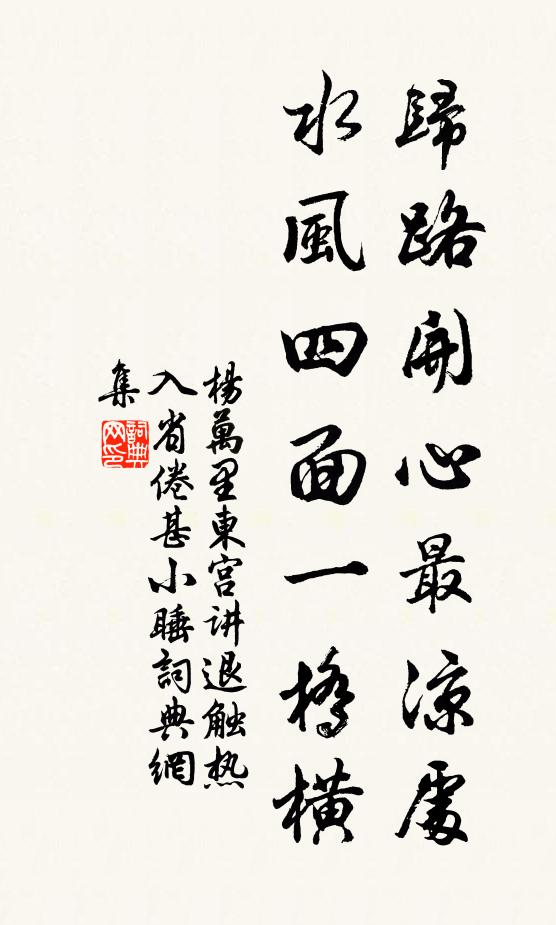 歸路開心最涼處
水風四面一橋橫
楊萬里東宮讲退触热
入省倦甚小睡詞典網
集
詞典
网印